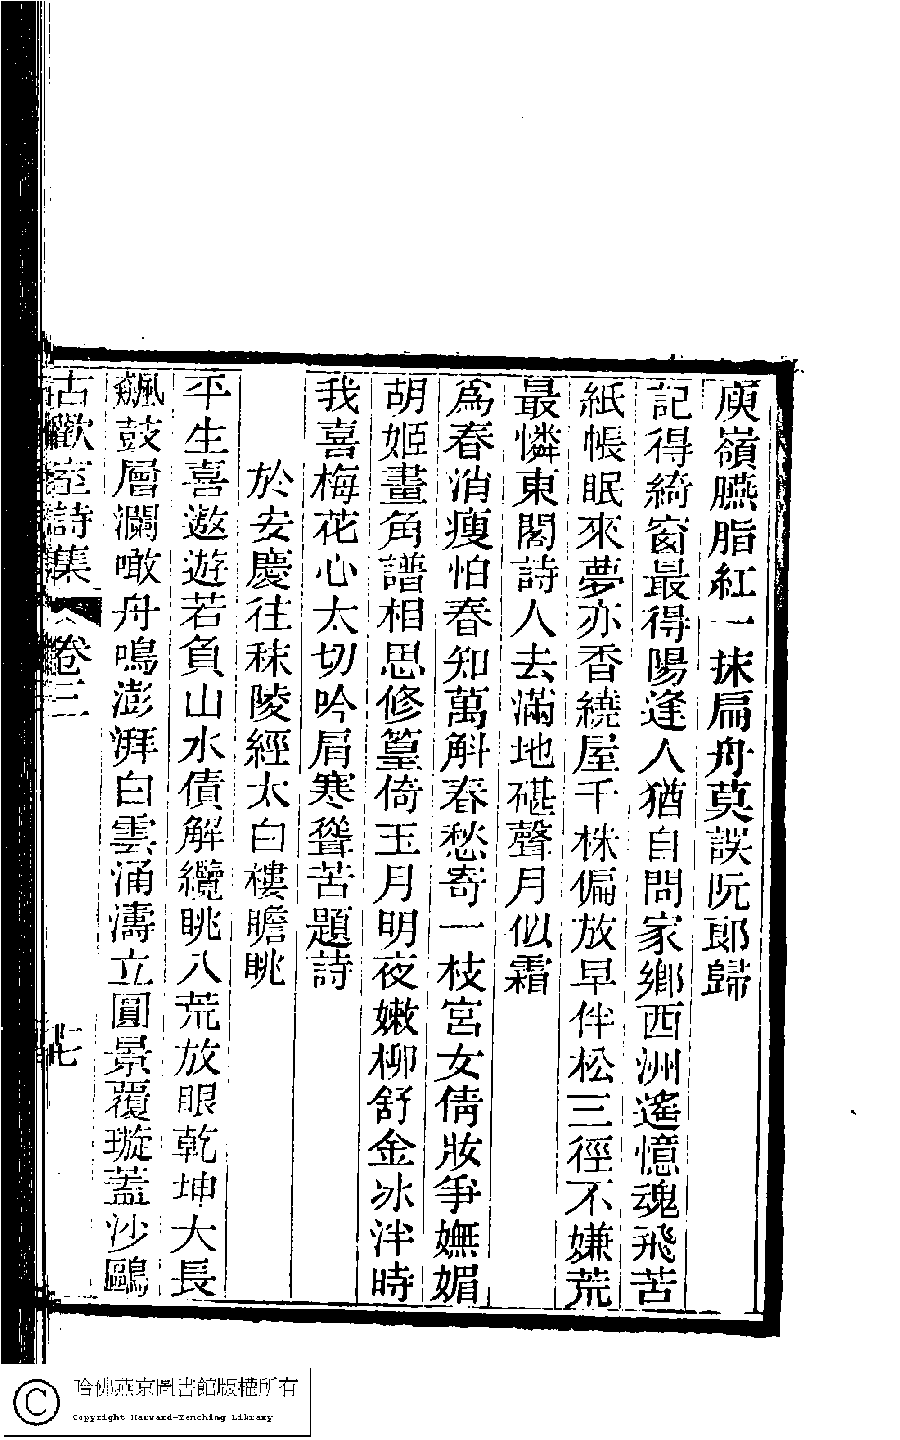 庾嶺臙脂紅一抹扁舟莫誤阮郎歸
記得綺窗最得陽逢人猶自問家鄉西洲遙憶魂飛苦
紙帳眠來夢亦香繞屋千株偏放早伴松三徑不嫌荒
最憐東閣詩人去滿地碪聲月似霜
爲春消瘦怕春知萬斛春愁寄一枝宮女倩妝爭嫵媚
胡姬畫角譜相思修篁倚玉月明夜嫩柳舒金冰泮時
我喜梅花心太切吟肩寒聳苦題詩
於安慶往秣陵經太白樓瞻眺
平生喜遨遊若負山水債解纜眺八荒放眼乾坤大長
飆鼓層瀾噉舟鳴澎湃白雲涌濤立圓景覆璇蓋沙鷗
古歡室詩集 卷三
七
哈佛燕京圖書館版權所有
Copyright Harvard-Yenching Library